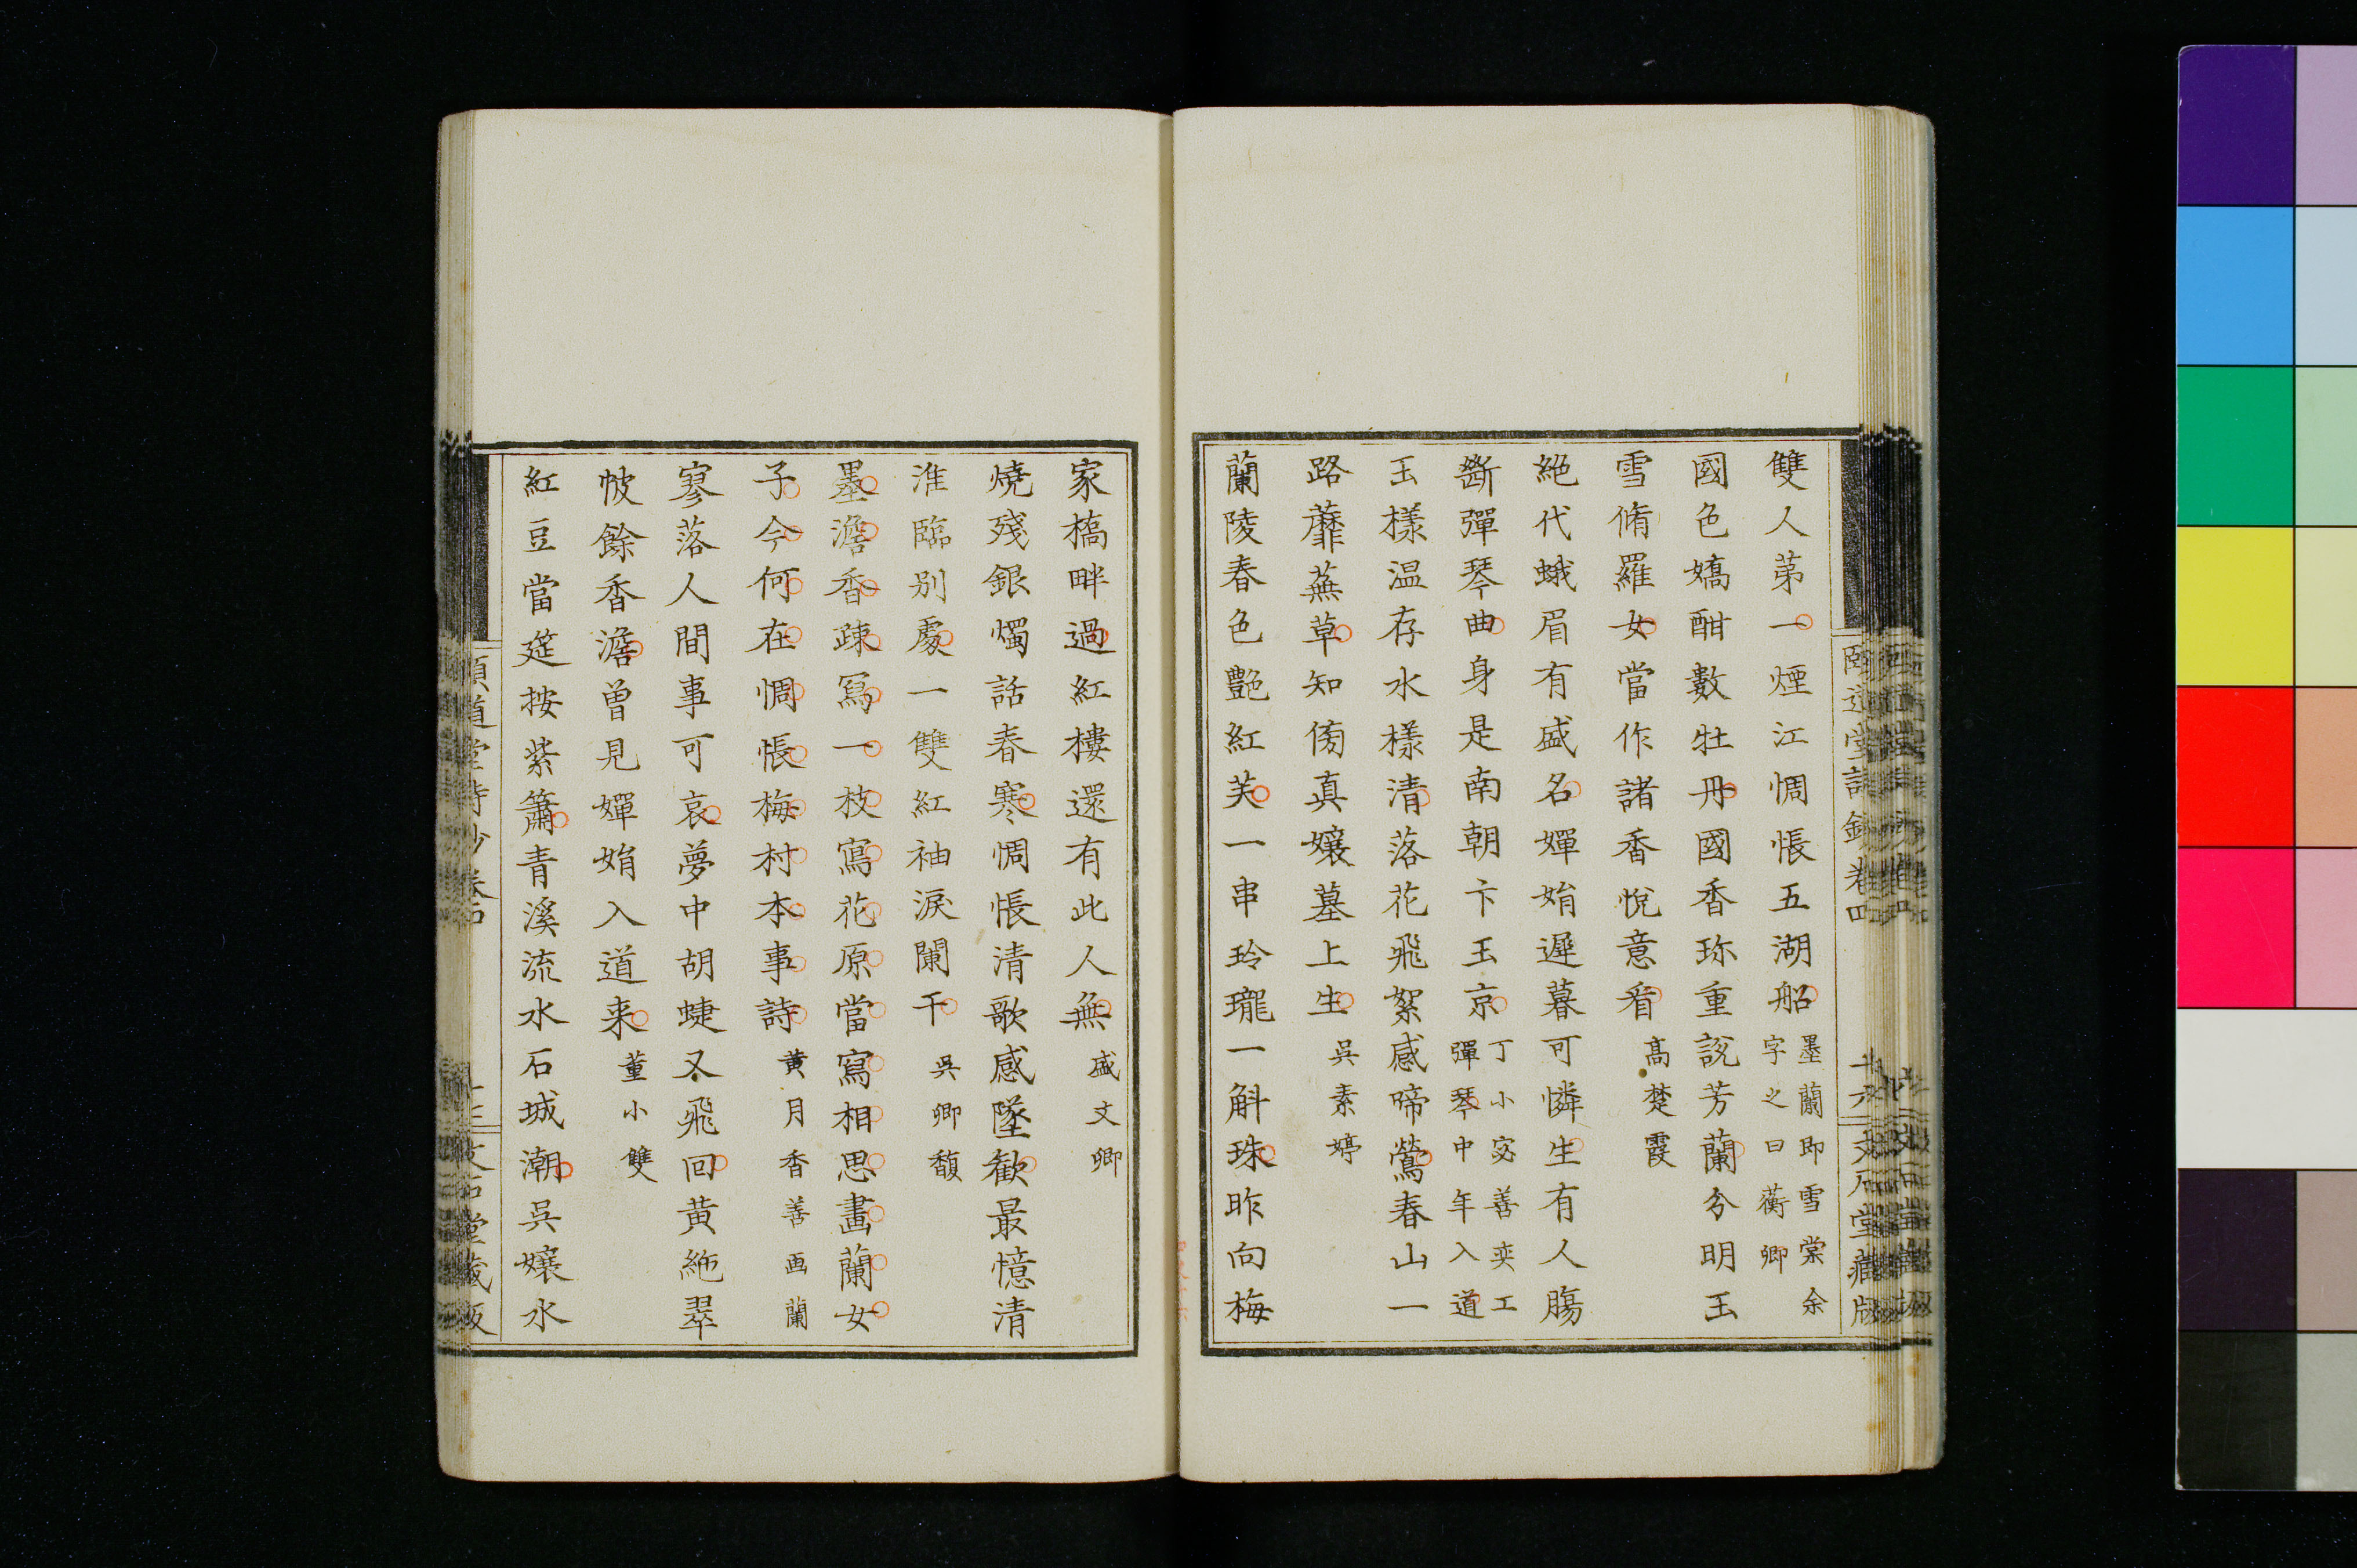 雙人苐一煙江惆悵五湖船墨蘭即雪棠余
字之曰蘅卿
國色嬌酣數牡丹國香珎重說芳蘭兮明玉
雪脩羅女當作諸香悅意看高楚霞
絕代蛾眉有盛名嬋娟遲暮可憐生有人腸
斷彈琴曲身是南朝卞玉京丁小宓善奕工
彈琴中年入道
玉樣温存水樣清落花飛絮感啼鶯春山一
路蘼蕪草知傍真孃墓上生吳素婷
蘭陵春色艷紅芙一串玲瓏一斛珠昨向梅
家橋畔過紅樓還有此人無盛文卿
燒殘銀燭話春寒惆悵清歌感墜歓最憶清
淮臨别處一雙紅袖淚闌干吳卿馥
墨澹香疎冩一枝寫花原當寫相思畫蘭女
子今何在惆悵梅村本事詩黄月香善画蘭
寥落人間事可哀夢中胡蜨又飛回黄絁翠
帔餘香澹曾見嬋娟入道来董小雙
紅豆當筵按紫簫青溪流水石城潮吳孃水
頤道堂詩鈔卷四
文石堂藏版